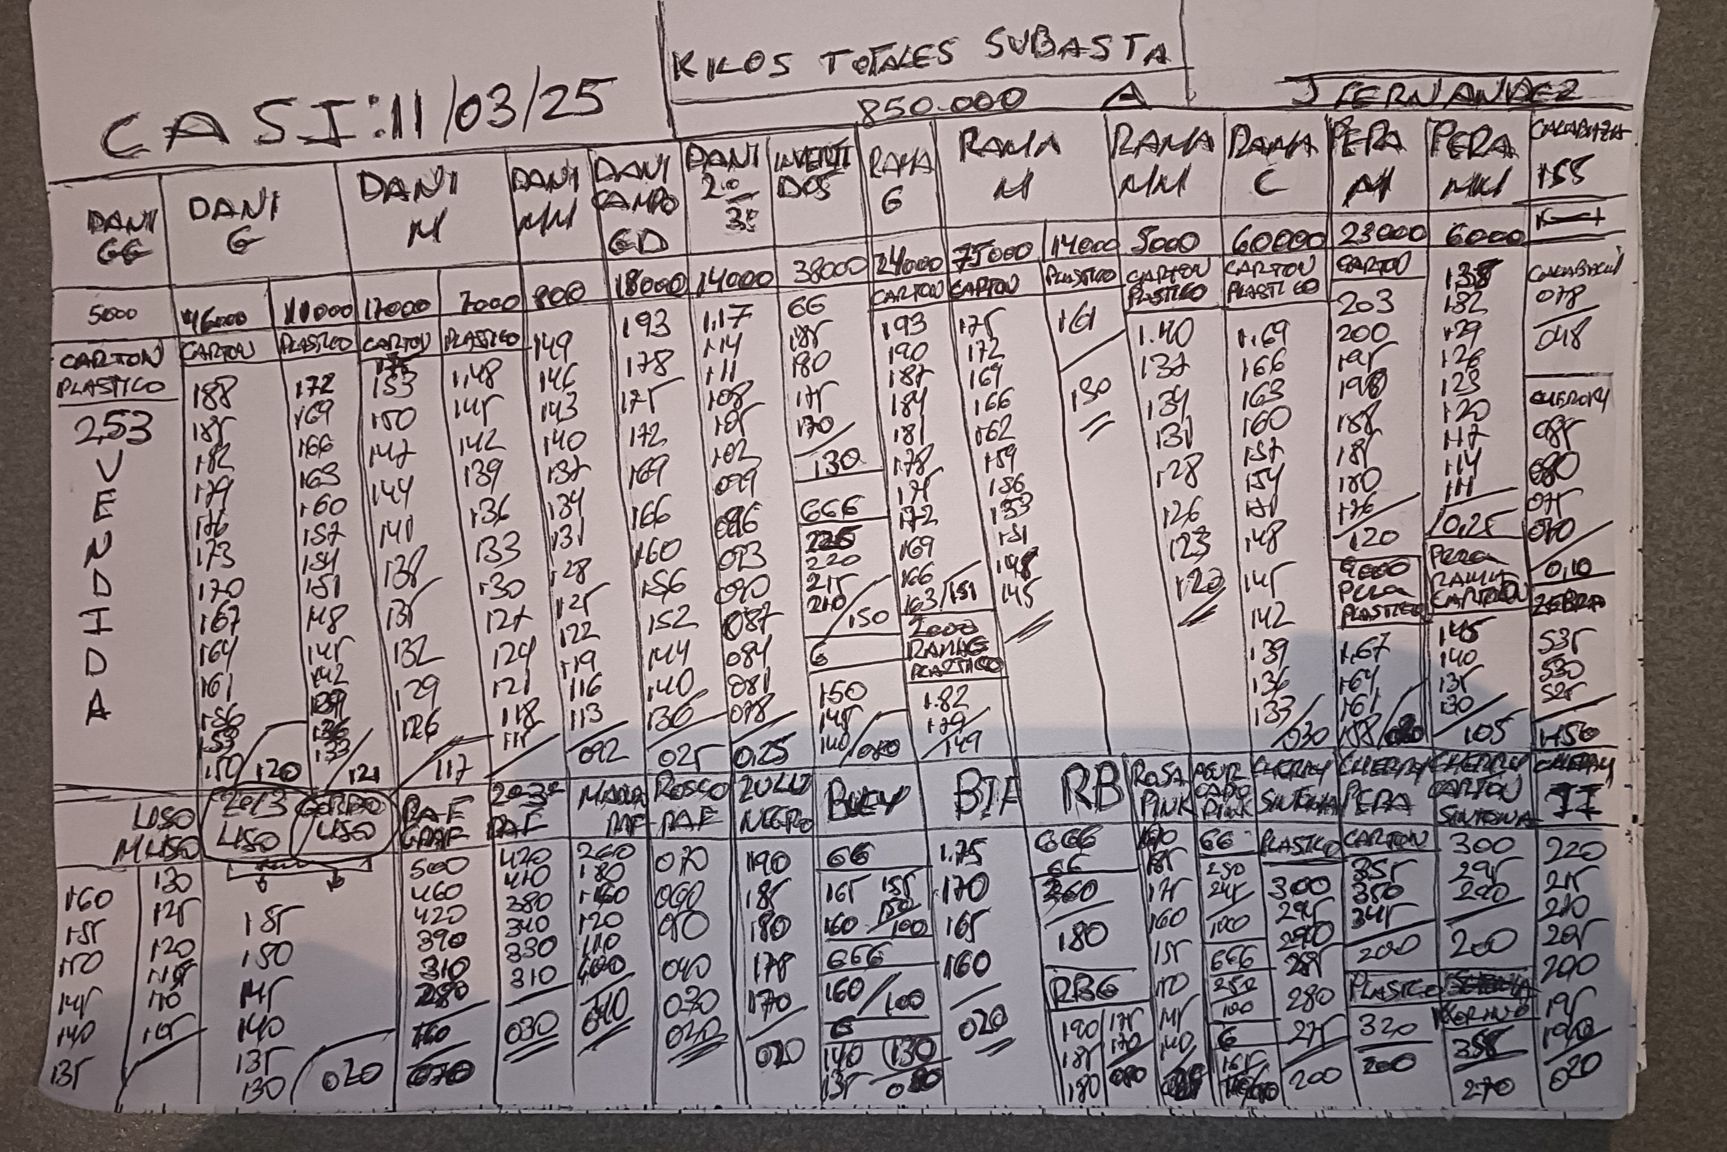 KILOS TOTALES SUBASTA
CASI: 11/03/25
850.000 A
J FERNANDEZ
DANI GG
DANI G
DANI M
DANI MM
DANI CAMPO GD
DANI 2º 3º
INVERTI DOS
RAMA G
RAMA M
RAMA MM
RAMA C
PERA M
PERA MM
CALABAZA
155
5000
46000
11000
17000
7000
800
18000
14000
38000
24000
75000
14000
5000
60000
23000
6000
CARTON PLASTICO
253
VENDIDA
CARTON
188
185
182
179
176
173
170
167
164
161
156
153
150/120
PLASTICO
172
169
166
163
160
157
154
151
148
145
142
139
136
133
121
CARTON
153
150
147
144
141
138
135
132
129
126
117
PLASTICO
1.48
145
142
139
136
133
130
127
124
121
118
115
149
146
143
140
137
134
131
128
125
122
119
116
113
092
193
178
175
172
169
166
160
156
152
144
140
136
025
1.17
1.14
111
108
105
102
099
096
093
090
087
084
081
078
0.25
66
185
180
175
170
130
666
225
220
215
210
150
6
150
145
140/080
CARTON
193
190
187
184
181
178
175
172
169
166
163/151
2000
RAMA G
PLASTICO
1.82
179
149
CARTON
175
172
169
166
162
159
156
153
151
148
145
PLASTICO
161
130
CARTON PLASTICO
1.40
137
134
131
128
126
123
120
CARTON PLASTICO
1.69
166
163
160
157
154
151
148
145
142
139
136
133/030
CARTON
203
200
195
190
188
185
180
176
120
9000
PERA
PLASTICO
1.67
164
161
158
135
132
129
126
123
120
117
114
111
0,25
PERA
RAMA
CARTON
145
140
135
130
105
CALABACIN
078
048
CHERRY
085
080
075
070
0,10
ZEBRA
535
530
525
1.50
LISO M LISO
2013 LISO
GORDO LISO
RAF GRAF
2º-3º RAF
MADUR RAF
ROSCO RAF
ZULU NEGRO
BUEY
BIF
RB
ROSA PINK
AGUR CADO PINK
CHERRY SINTONIA
CHERRY PERA
CHERRY CARTON SINTONIA
CHERRY II
160
155
150
145
140
135
130
125
120
115
110
105
185
150
145
140
135
130
020
500
460
420
390
310
280
160
070
420
410
380
340
330
310
030
260
180
160
120
110
100
040
070
060
050
040
030
020
190
185
180
178
170
020
66
165 155
160 150/100
666
160/100
6
140 130
135
1.75
170
165
160
020
666
66
260
180
RBG
190 175
185 170
180
190
185
175
160
155
150
145
140
66
250
245
100
666
250
100
6
165
PLASTICO
300
295
290
285
280
275
200
CARTON
355
350
345
200
PLASTICO
320
200
300
295
290
200
355
270
220
215
210
205
200
195
190
020